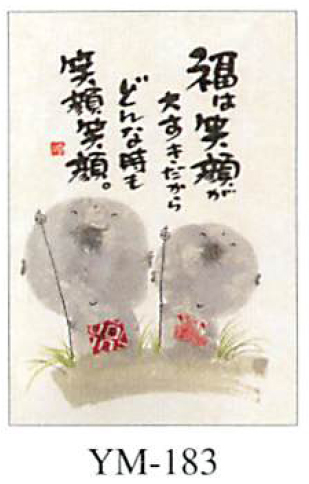 福は笑顔が
大すきだから
どんな時も
笑顔笑顔。
YM-183